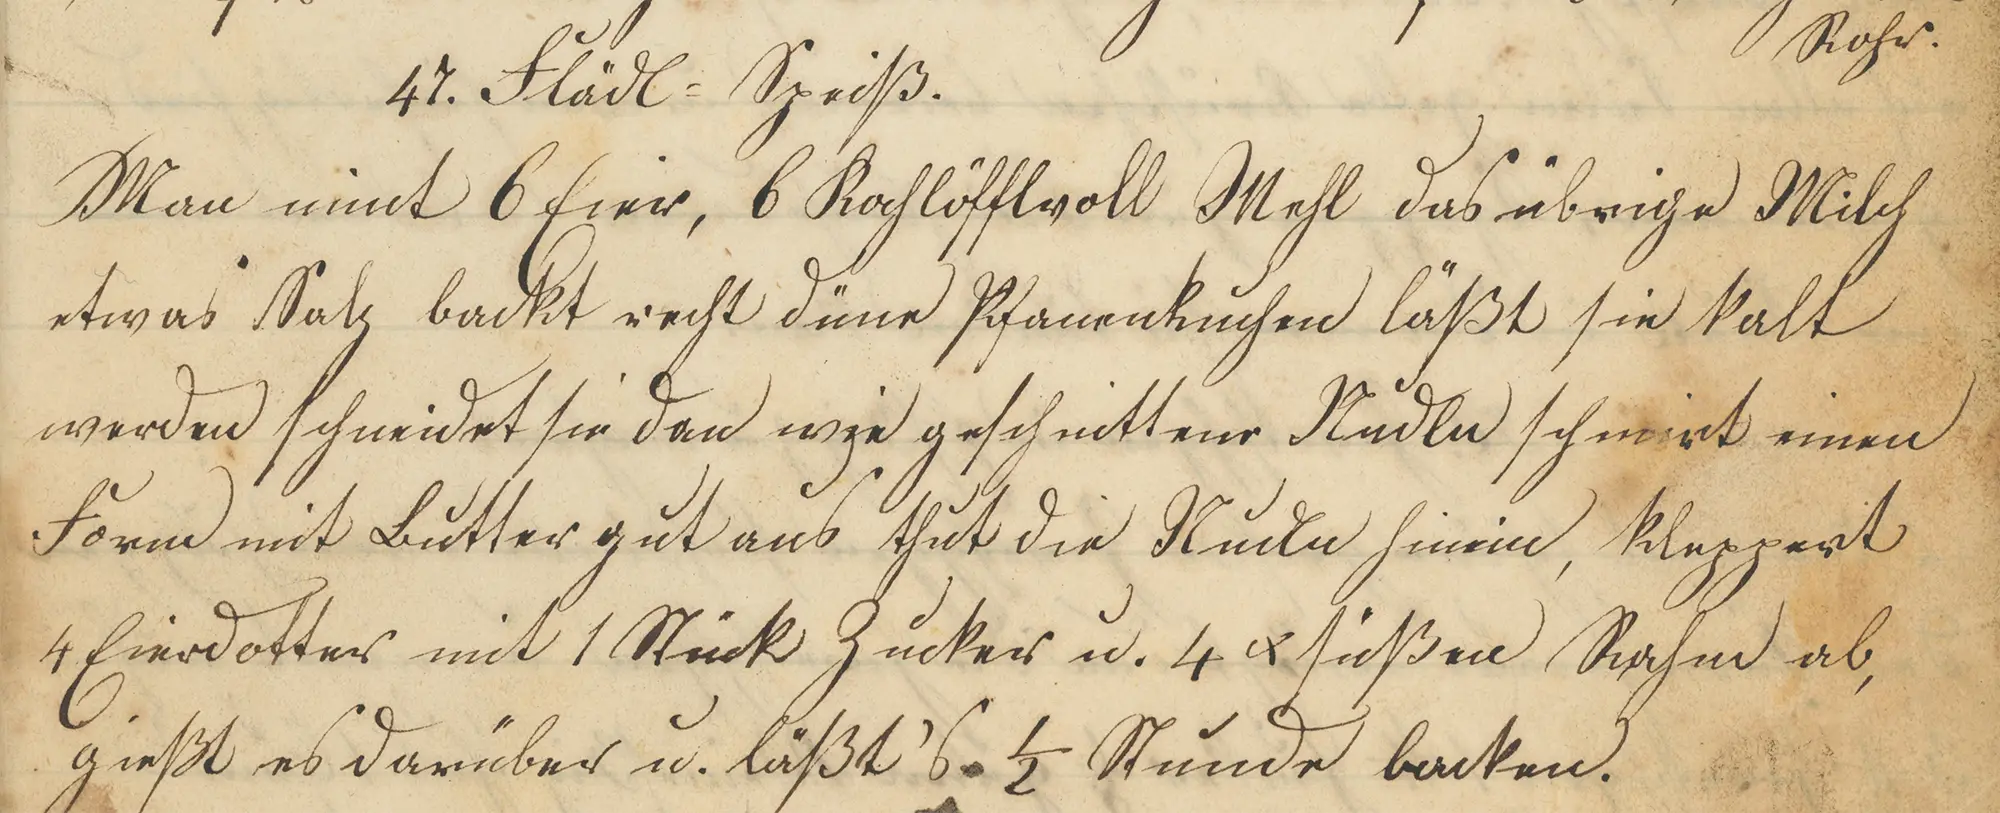 Rohr.
47. Flädl= Speiß.
Man nimt 6 Eier, 6 Kochlöfflvoll Mehl das übrige Milch
etwas Salz backt recht düne Pfanenkuchen läßt sie kalt
werden schneidet sie dan wie geschnittene Nudln schmirt einen
Form mit Butter gut aus thut die Nudln hinein, kleppert
4 Eierdotter mit 1 Stück Zucker u. 4 süßen Rahm ab,
gießt es darüber u. läßt's ½ Stunde backen.